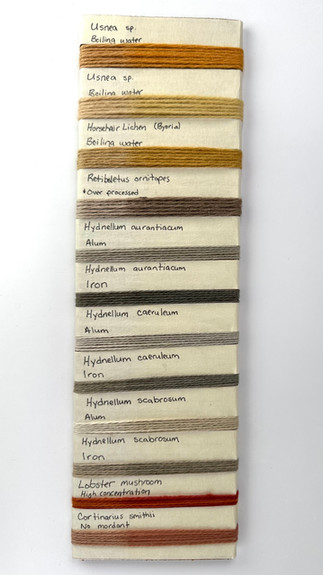 Usnea sp.
Boiling water
Usnea sp.
Boiling water
Horsehair Lichen (Byoria)
Boiling water
Retiboletus ornitopes
*Over processed
Hydnellum aurantiacum
Alum
Hydnellum aurantiacum
Iron
Hydnellum caeruleum
Alum
Hydnellum caeruleum
Iron
Hydnellum scabrosum
Alum
Hydnellum scabrosum
Iron
Lobster mushroom
High concentration
Cortinarius smithii
No mordant